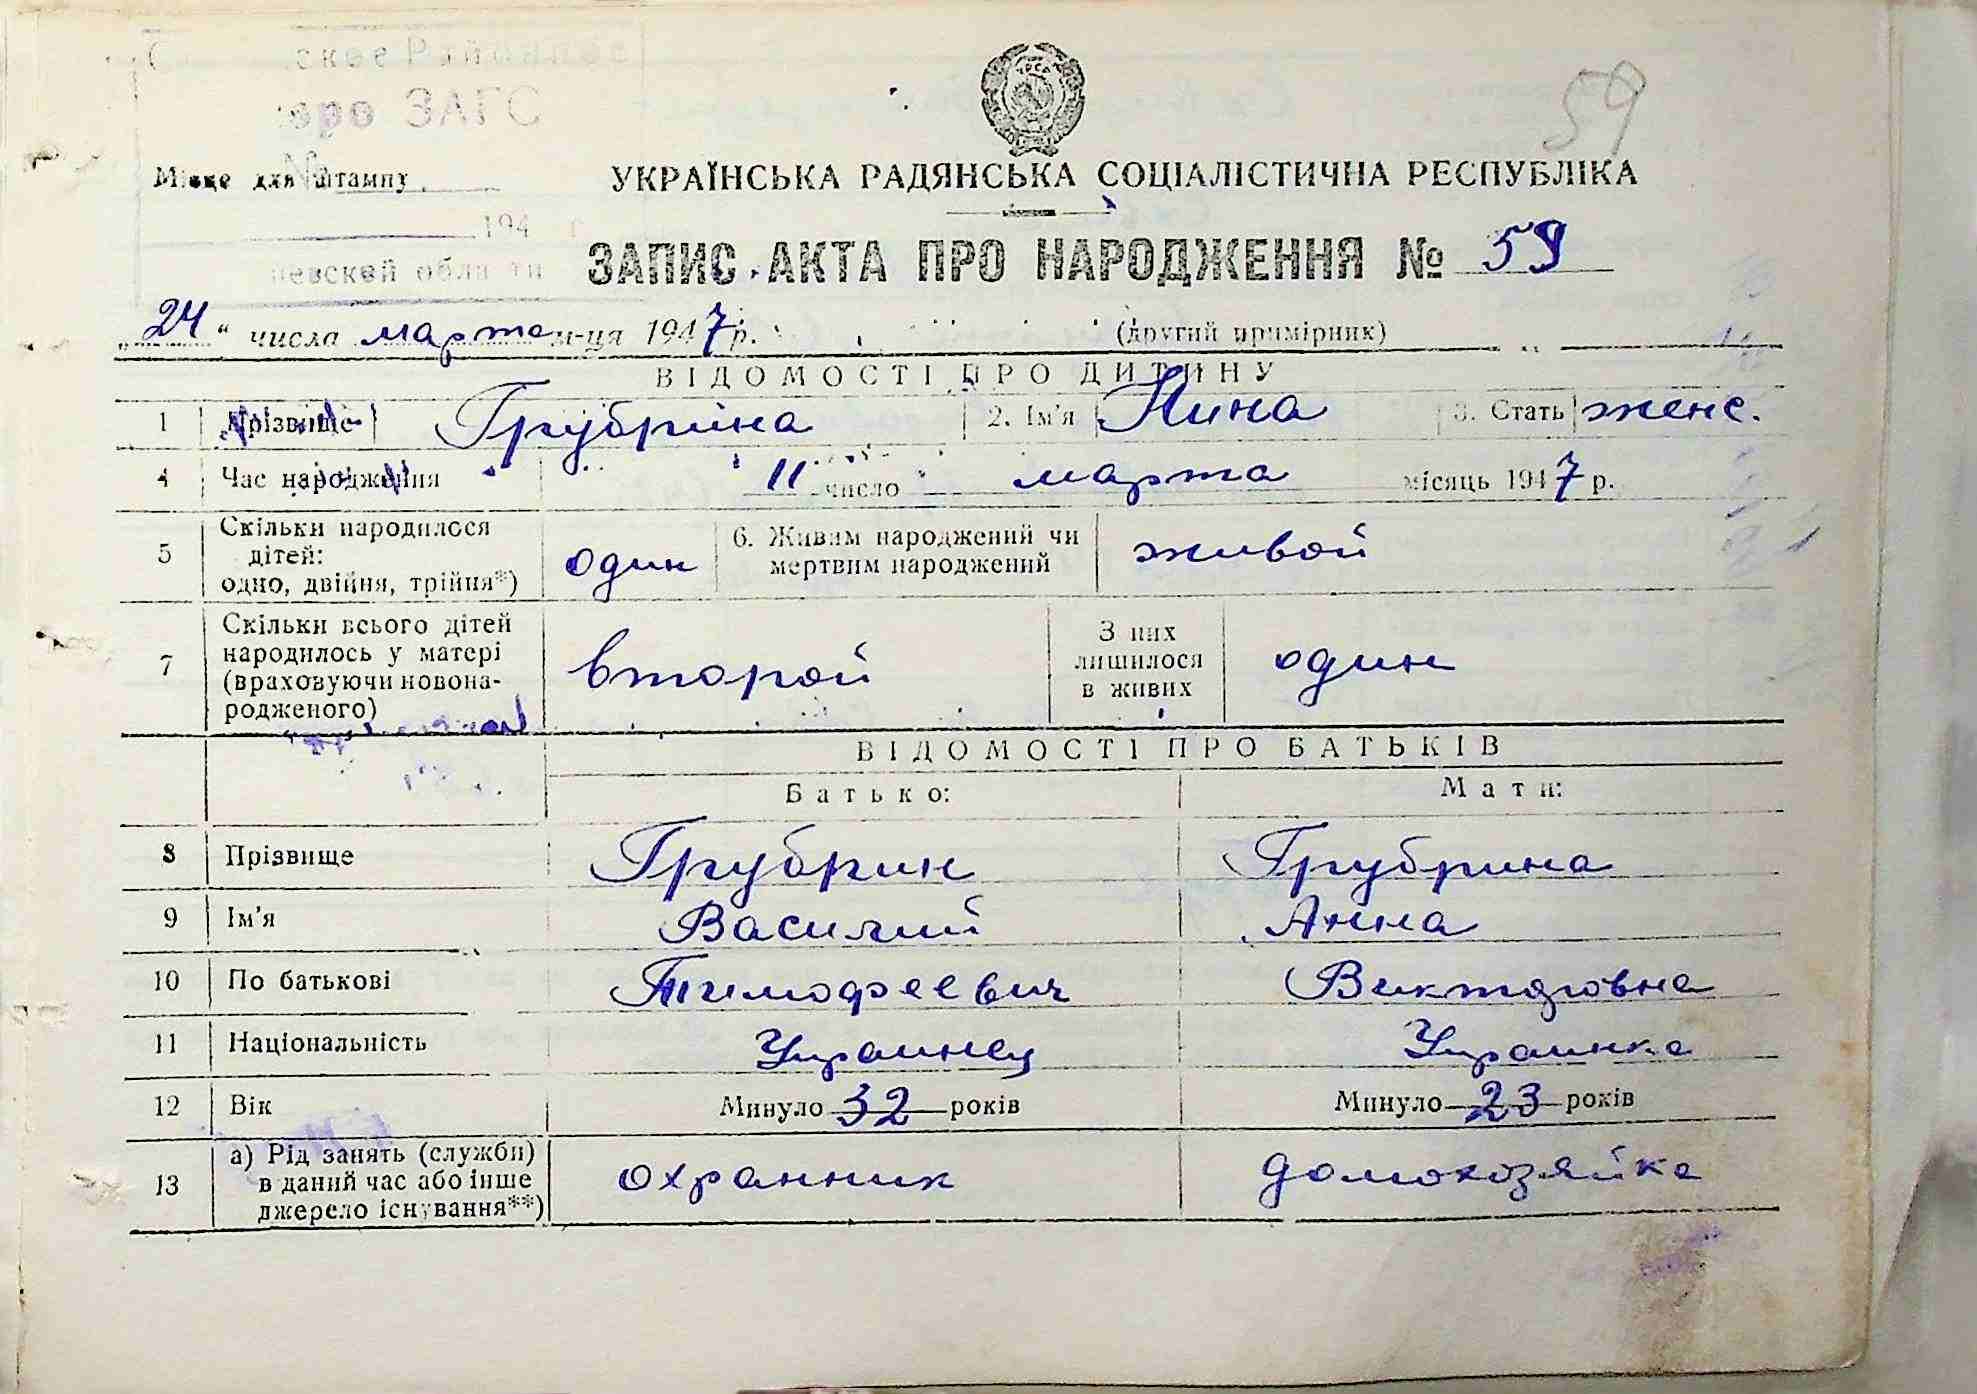 ское Районное
бюро ЗАГС
59
Місце для штампу
УКРАЇНСЬКА РАДЯНСЬКА СОЦІАЛІСТИЧНА РЕСПУБЛІКА
194 г.
ЗАПИС АКТА ПРО НАРОДЖЕННЯ № 59
невской области
„24“ числа марта м-ця 1947 р. (другий примірник)
ВІДОМОСТІ ПРО ДИТИНУ
1 Прізвище Грубрина 2. Ім'я Нина 3. Стать женс.
4 Час народження 11 число марта місяць 1947 р.
5 Скільки народилося дітей: одно, двійня, трійня*) один 6. Живим народжений чи мертвим народжений живой
7 Скільки всього дітей народилось у матері (враховуючи новонародженого) второй З них лишилося в живих один
ВІДОМОСТІ ПРО БАТЬКІВ
Батько: Мати:
8 Прізвище Грубрин Грубрина
9 Ім'я Василий Анна
10 По батькові Тимофеевич Викторовна
11 Національність Украинец Украинка
12 Вік Минуло 32 років Минуло 23 років
13 а) Рід занять (служби) в даний час або інше джерело існування**) охранник домохозяйка